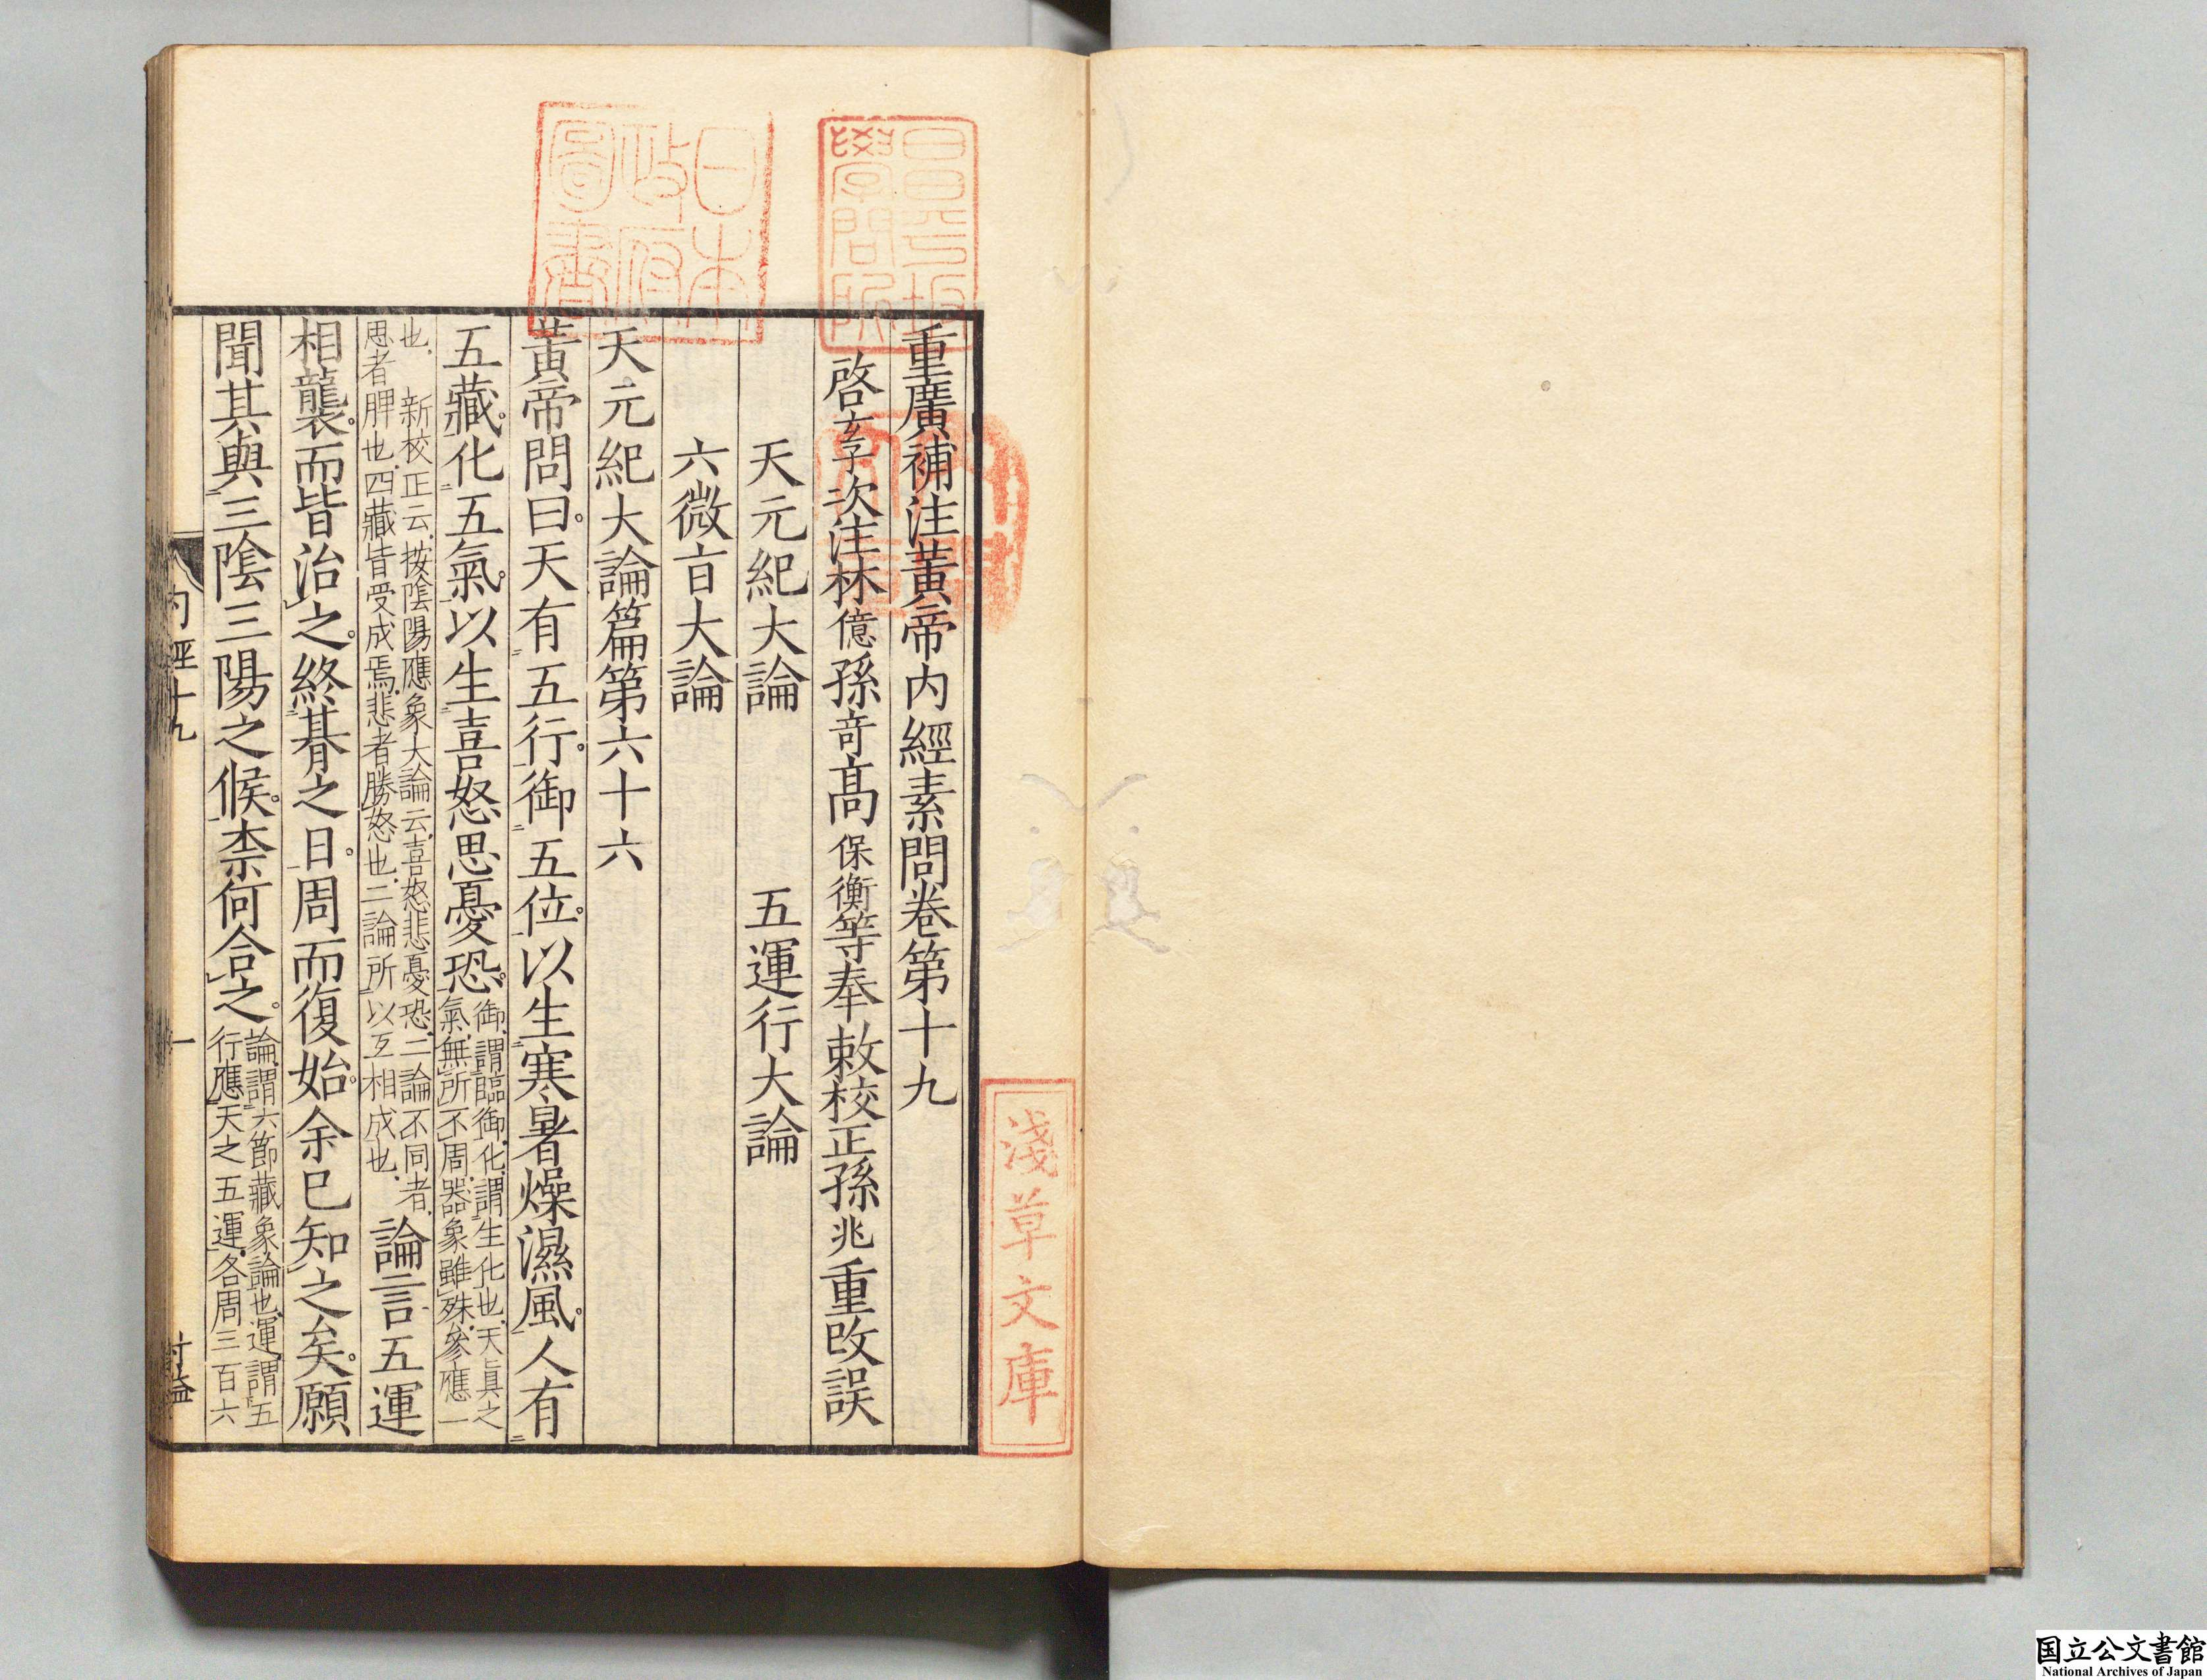 重廣補注黃帝内經素問卷第十九
啓玄子次注林億孫竒髙保衡等奉敕校正孫兆重改誤
天元紀大論　五運行大論
六微㫖大論
天元紀大論篇第六十六
黃帝問曰。天有五行。御五位。以生寒暑燥濕風。人有
五藏。化五氣。以生喜怒思憂恐。御、謂臨御、化、謂生化也、天真之氣、無所不周、器象雖殊、參應一
也、　新校正云、按陰陽應象大論云、喜怒悲憂恐、二論不同者、思者脾也、四藏皆受成焉、悲者勝怒也、二論所以互相成也、論言五運
相襲。而皆治之。終朞之日。周而復始。余已知之矣。願
聞其與三陰三陽之候。柰何合之。論、謂六節藏象論也、運、謂五行應天之五運、各周三百六
内經十九
一
日本政府圖書
昌平坂學問所
淺草文庫
国立公文書館
National Archives of Japan